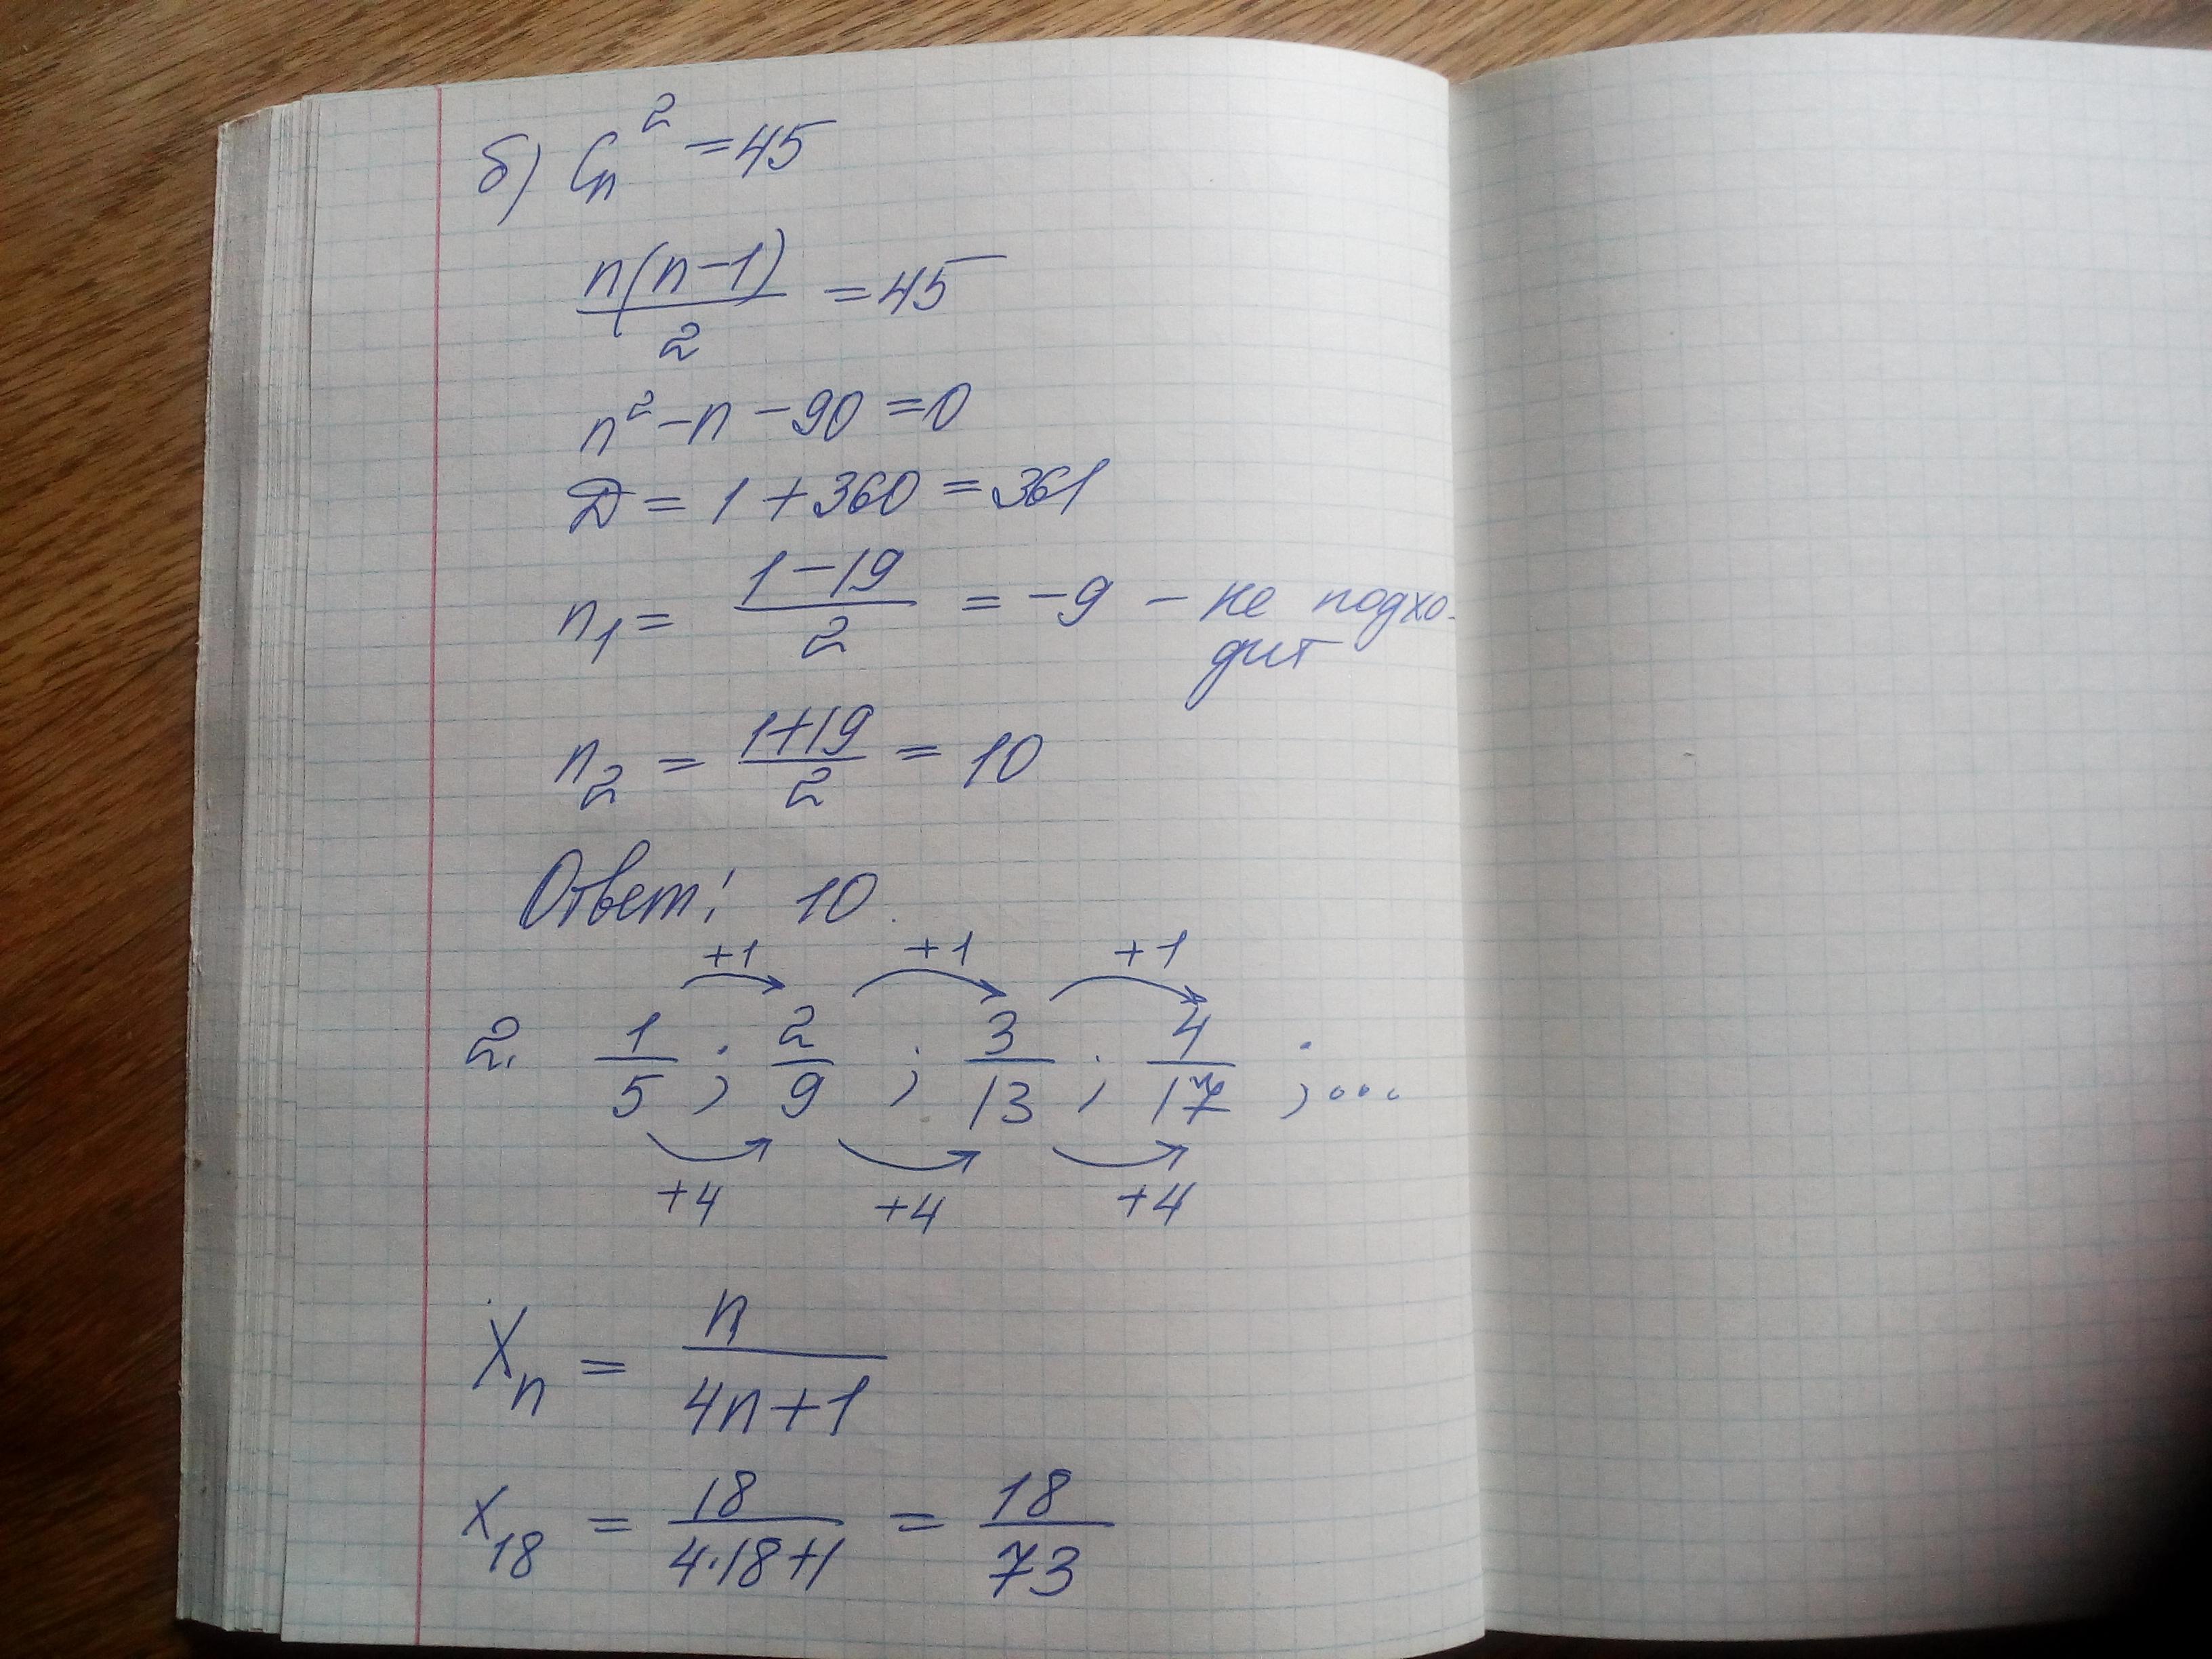 б) Cₙ² = 45
n(n-1)/2 = 45
n² - n - 90 = 0
D = 1 + 360 = 361
n₁ = (1-19)/2 = -9 - не подхо-
дит
n₂ = (1+19)/2 = 10
Ответ: 10.
+1 +1 +1
2. 1/5 ; 2/9 ; 3/13 ; 4/17 ; ...
+4 +4 +4
Xₙ = n/(4n+1)
X₁₈ = 18/(4·18+1) = 18/73